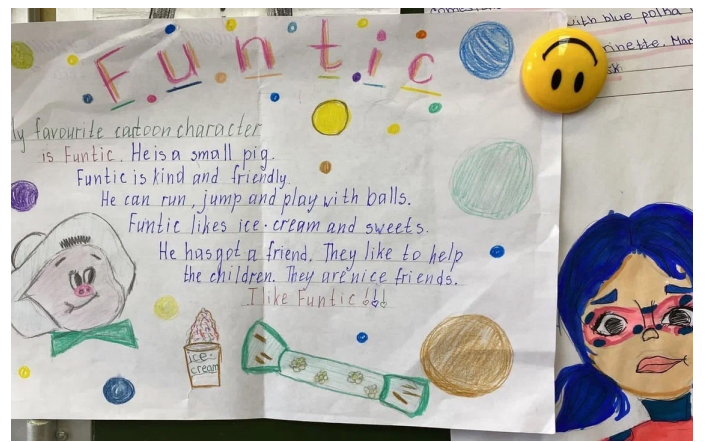 Funtic
My favourite cartoon character
is Funtic. He is a small pig.
Funtic is kind and friendly.
He can run, jump and play with balls.
Funtic likes ice-cream and sweets.
He has got a friend. They like to help
the children. They are nice friends.
I like Funtic!!!
ice-
cream
with blue polka
Mar